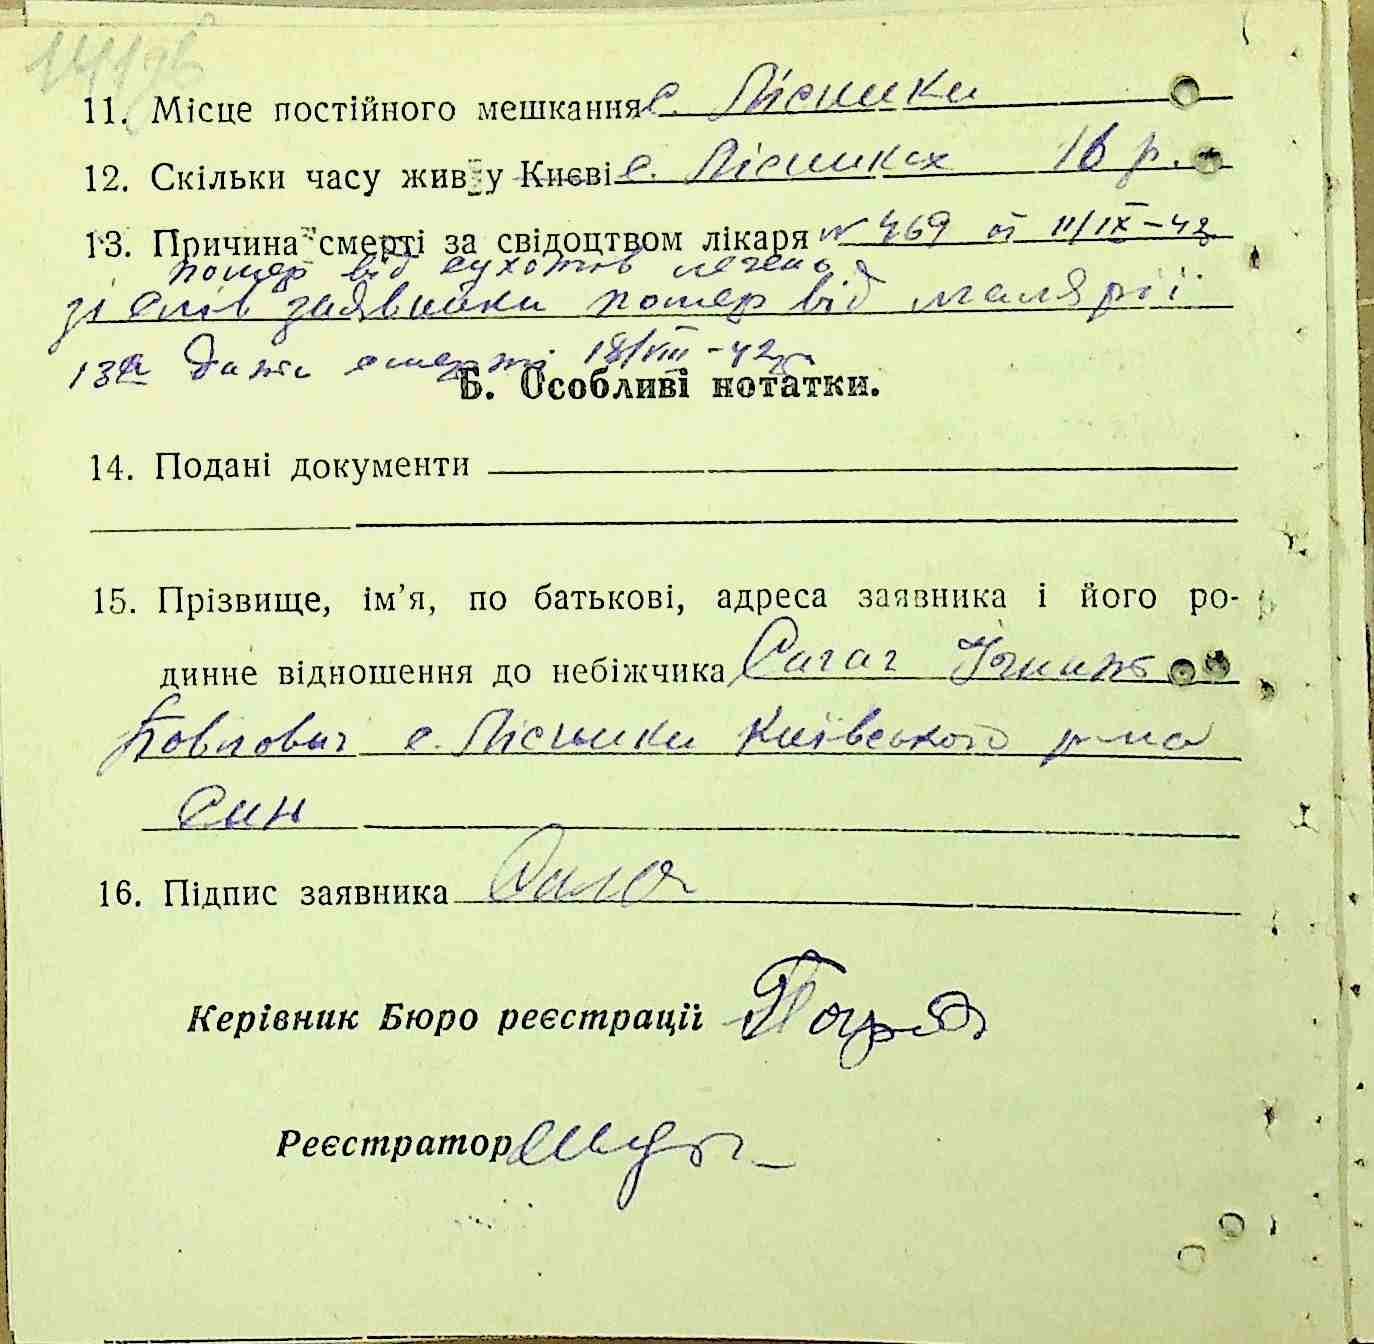 11. Місце постійного мешкання с. Лісники
12. Скільки часу жив у Києві с. Лісниках 16 р.
13. Причина смерті за свідоцтвом лікаря № 469 от 11/IX-42
помер від сухотів легень
зі слів заявника помер від малярії
13а Дата смерті 18/VIII-42 р
Б. Особливі нотатки.
14. Подані документи
15. Прізвище, ім'я, по батькові, адреса заявника і його ро-
динне відношення до небіжчика Сагач
Павлович с. Лісники Київського р-на
Син
16. Підпис заявника
Керівник Бюро реєстрації
Реєстратор